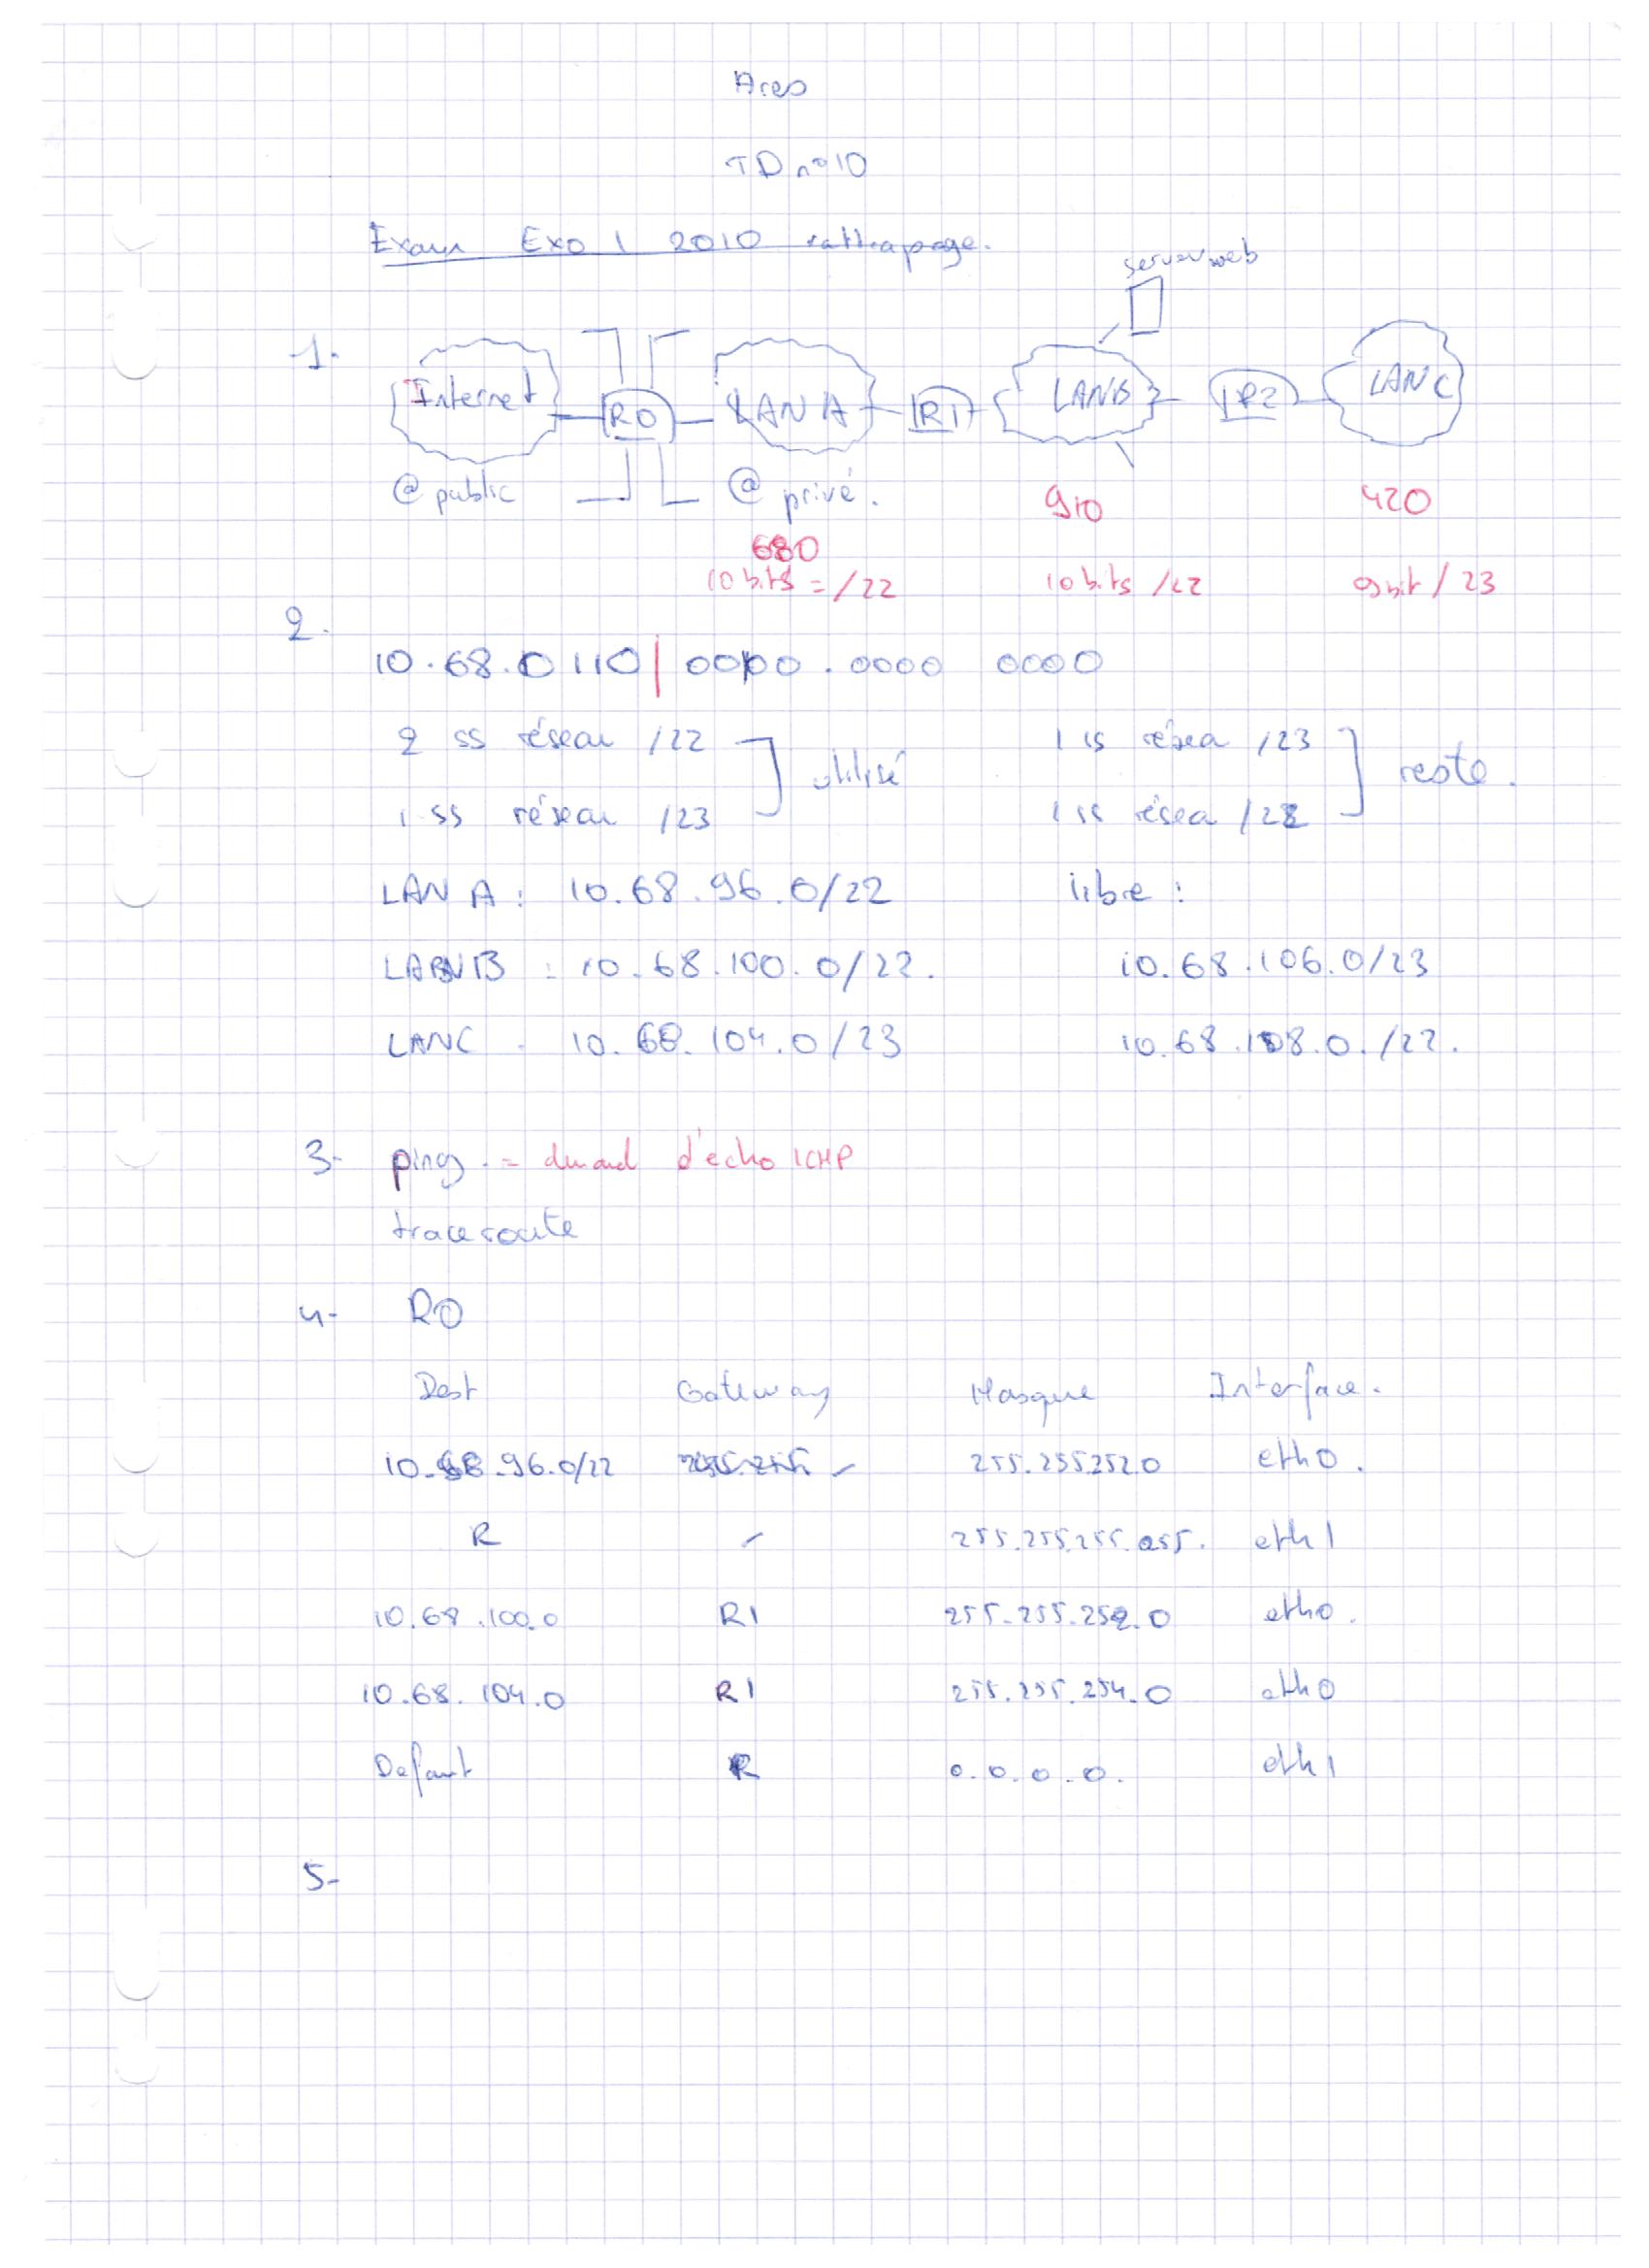 Ares
TD n°10
Exam Exo 1 2010 rattrapage.
server web
1-
Internet RO LAN A R1 LANB R2 LANC
@ public @ privé.
910 420
680
10 bits = /22 10 bits /22 9 bit / 23
2-
10.68.0110|0000.0000 0000
2 ss réseau /22 1 ss résea /23
utilisé reste.
1 ss réseau /23 1 ss résea /22
LAN A : 10.68.96.0/22 libre :
LANB : 10.68.100.0/22. 10.68.106.0/23
LANC : 10.68.104.0/23 10.68.108.0./22.
3- ping = dmand d'écho ICMP
traceroute
4- RO
Dest Gateway Masque Interface.
10.68.96.0/22 - 255.255.252.0 eth0.
R - 255.255.255.255. eth1
10.68.100.0 R1 255.255.252.0 eth0.
10.68.104.0 R1 255.255.254.0 eth0
Defaut R 0.0.0.0. eth1
5-